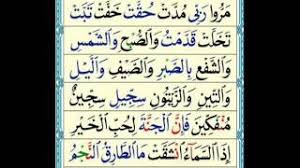 مَرُّوْا رَبِّیْ مُدَّتْ حُقَّتْ خَفَّتْ تَبَّتْ
تَخَلَّتْ قَدَّمَتْ وَالصُّبْحِ وَالشَّمْسِ
وَالشَّفْعِ بِالصَّبْرِ وَالصَّيْفِ وَالَّيْلِ
وَالتِّيْنِ وَالزَّيْتُوْنِ سِجِّيْلٍ سِجِّيْنٌ
مُنْفَكِّيْنَ فَاِنَّ الْجَنَّةَ لِحُبِّ الْخَيْرِ
اِذَا السَّمَآءُ انْشَقَّتْ مَا الطَّارِقُ النَّجْمُ